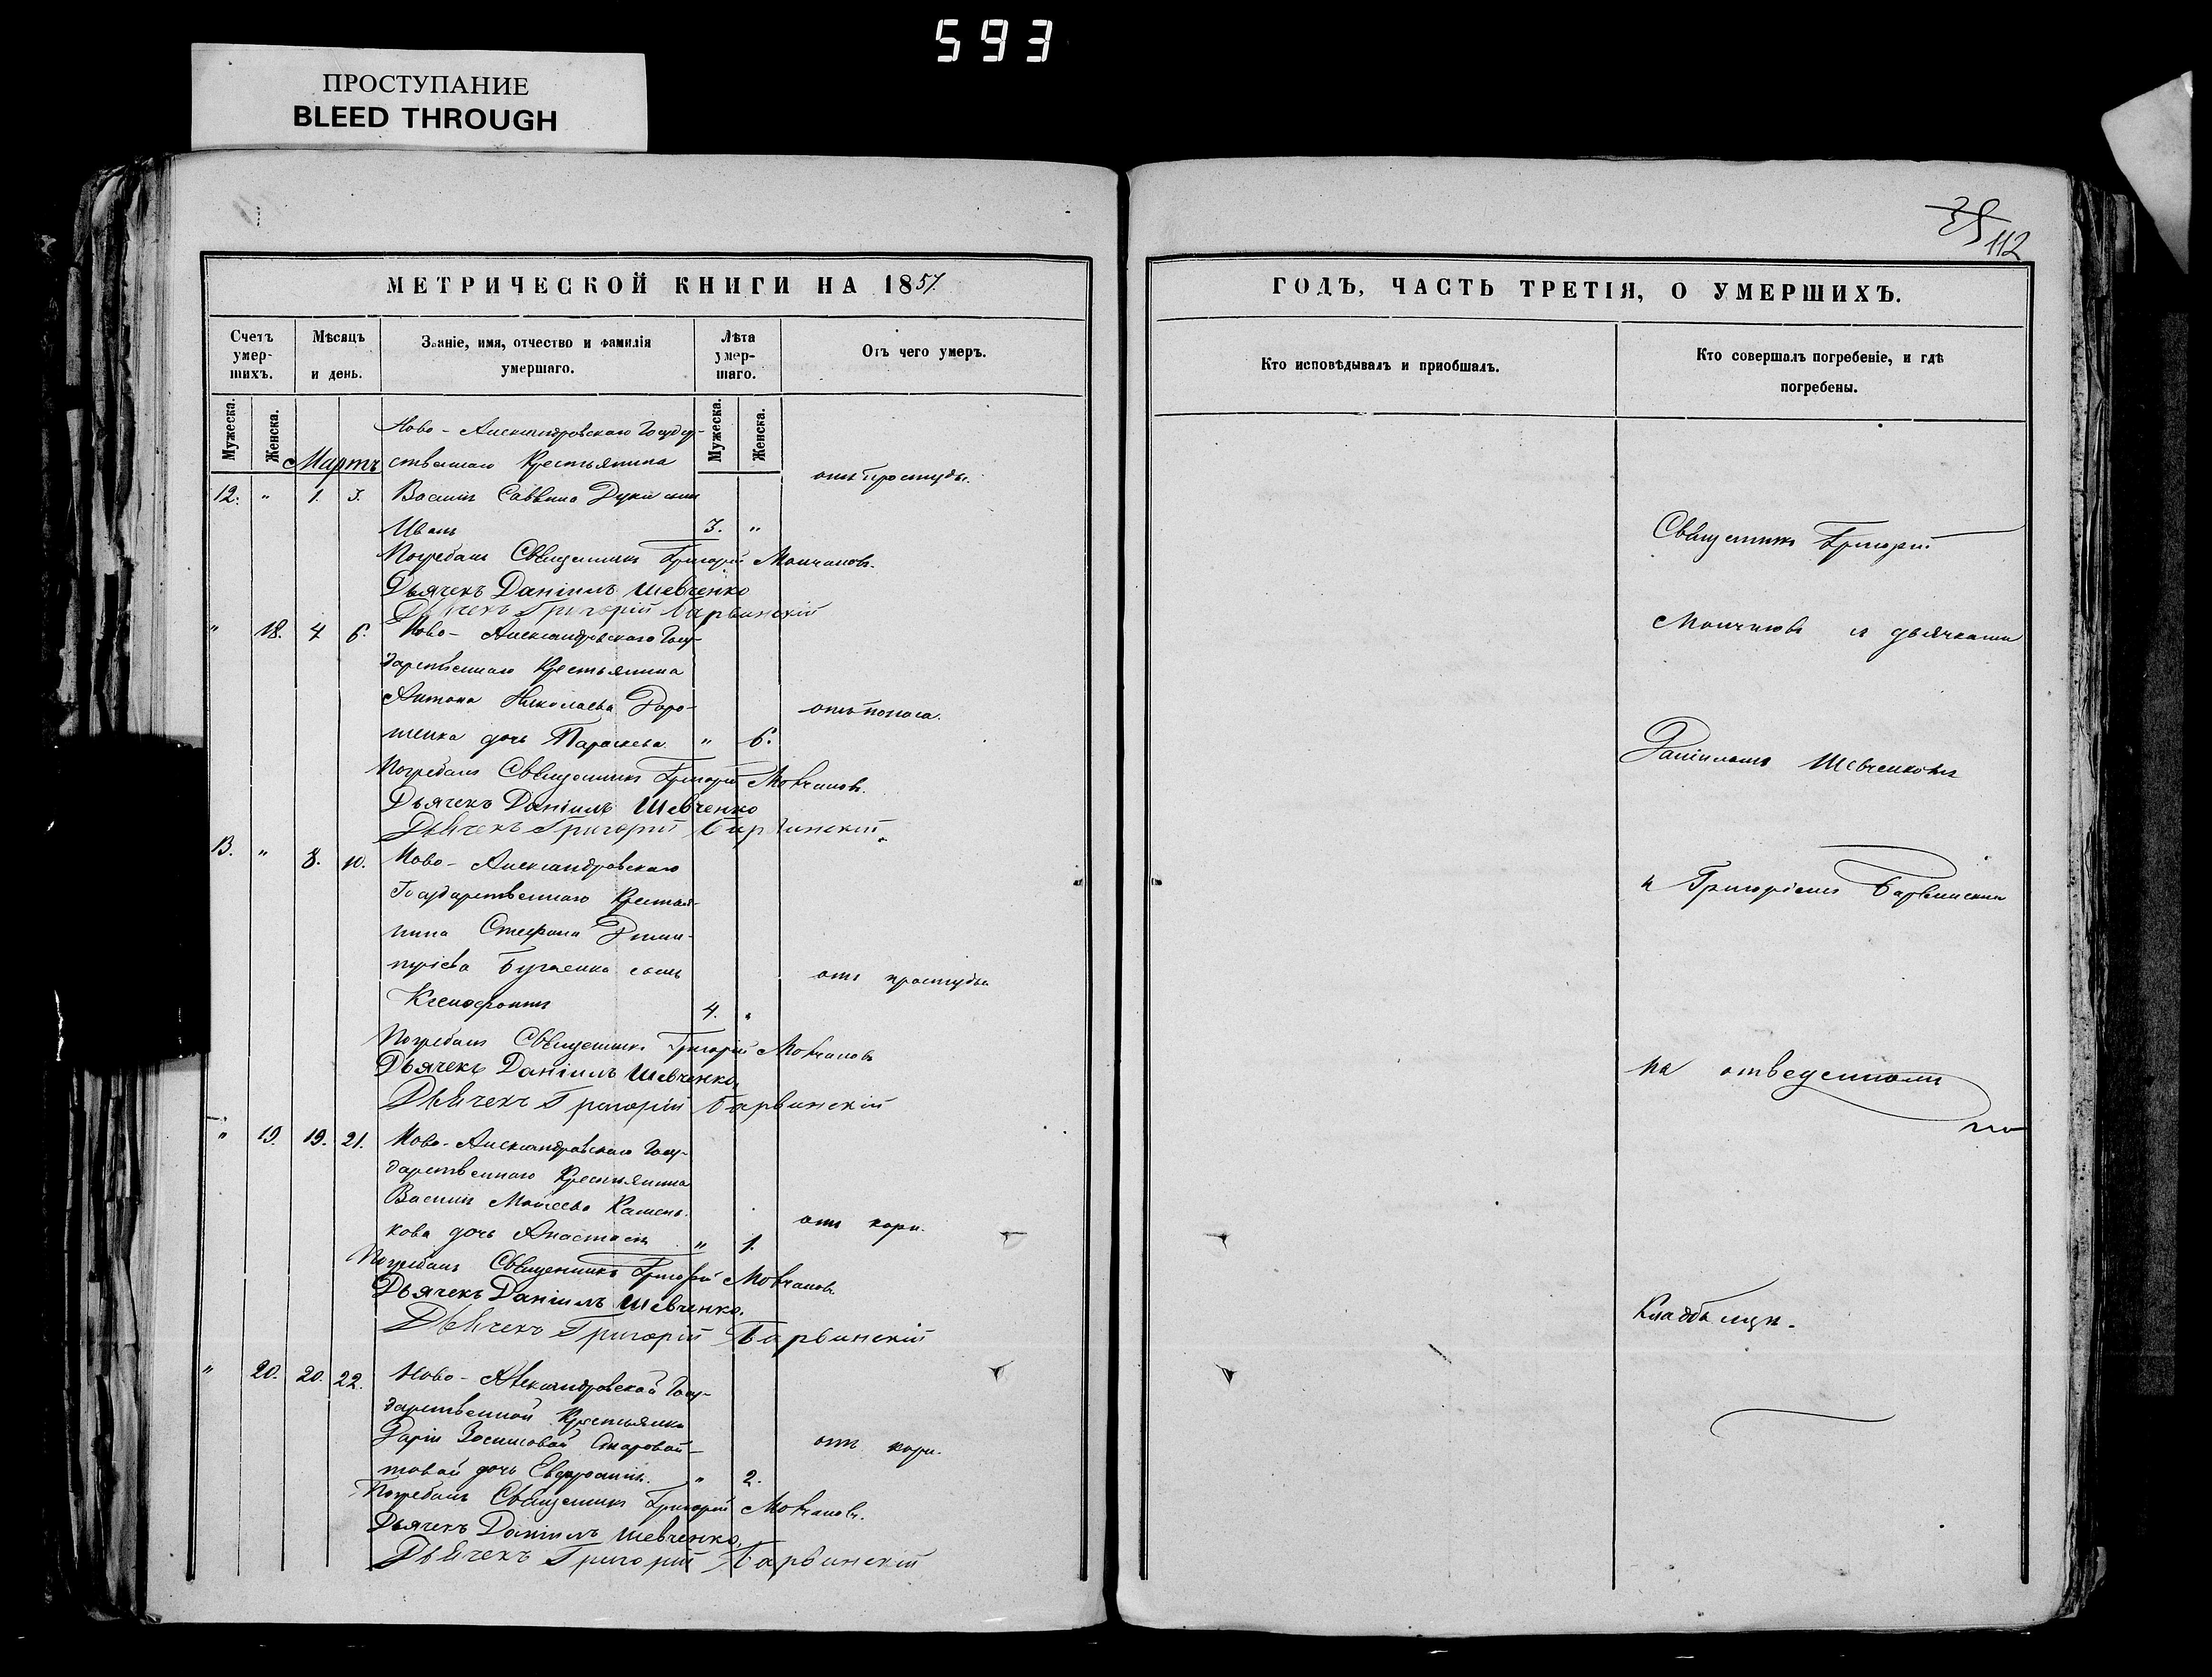 593
ПРОСТУПАНИЕ
BLEED THROUGH
112
МЕТРИЧЕСКОЙ КНИГИ НА 1857.
Счетъ умер-шихъ.
Мѣсяцъ и день.
Званіе, имя, отчество и фамилія умершаго.
Лѣта умер-шаго.
Отъ чего умеръ.
Мужеска.
Женска.
Мужеска.
Женска.
Мартъ
Ново-Александровскаго Государ-
ственнаго Крестьянина
12. " 1. 3. Василія Саввина сынъ отъ простуды.
Иванъ 3. "
Погребалъ Священникъ Григорій Мовчановъ.
Дьячекъ Даніилъ Шевченко
Дьячекъ Григорій Барвинскій
" 18. 4 6. Ново-Александровскаго Госу-
дарственнаго Крестьянина
Антона Николаева Доро-
шенка дочь Параскева " 6. отъ поноса.
Погребалъ Священникъ Григорій Мовчановъ.
Дьячекъ Даніилъ Шевченко
Дьячекъ Григорій Барвинскій.
13. " 8. 10. Ново-Александровскаго
Государственнаго Крестья-
нина Стефана Дими-
тріева Бугаенка сынъ отъ простуды
Ксенофонтъ 4. "
Погребалъ Священникъ Григорій Мовчановъ
Дьячекъ Даніилъ Шевченко,
Дьячекъ Григорій Барвинскій
" 19. 19. 21. Ново-Александровскаго Госу-
дарственнаго Крестьянина
Василія Моисеева Камень-
кова дочь Анастасія " 1. отъ кори.
Погребалъ Священникъ Григорій Мовчановъ
Дьячекъ Даніилъ Шевченко.
Дьячекъ Григорій Барвинскій
" 20. 20. 22. Ново-Александровской Госу-
дарственной Крестьянки
Даріи Зосимовой Старовой-
товой дочь Евфросинія. " 2. отъ кори.
Погребалъ Священникъ Григорій Мовчановъ.
Дьячекъ Даніилъ Шевченко,
Дьячекъ Григорій Барвинскій
ГОДЪ, ЧАСТЬ ТРЕТІЯ, О УМЕРШИХЪ.
Кто исповѣдывалъ и приобшалъ.
Кто совершалъ погребеніе, и гдѣ погребены.
Священникъ Григорій
Мовчановъ съ дьячками
Даніиломъ Шевченковъ
и Григоріемъ Барвинскимъ
на отведенномъ
Кладбищѣ.